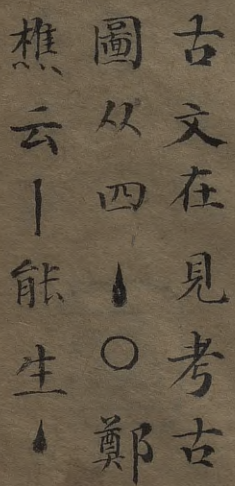 古文在見考古
圖从四丶〇鄭
樵云丨能生丶